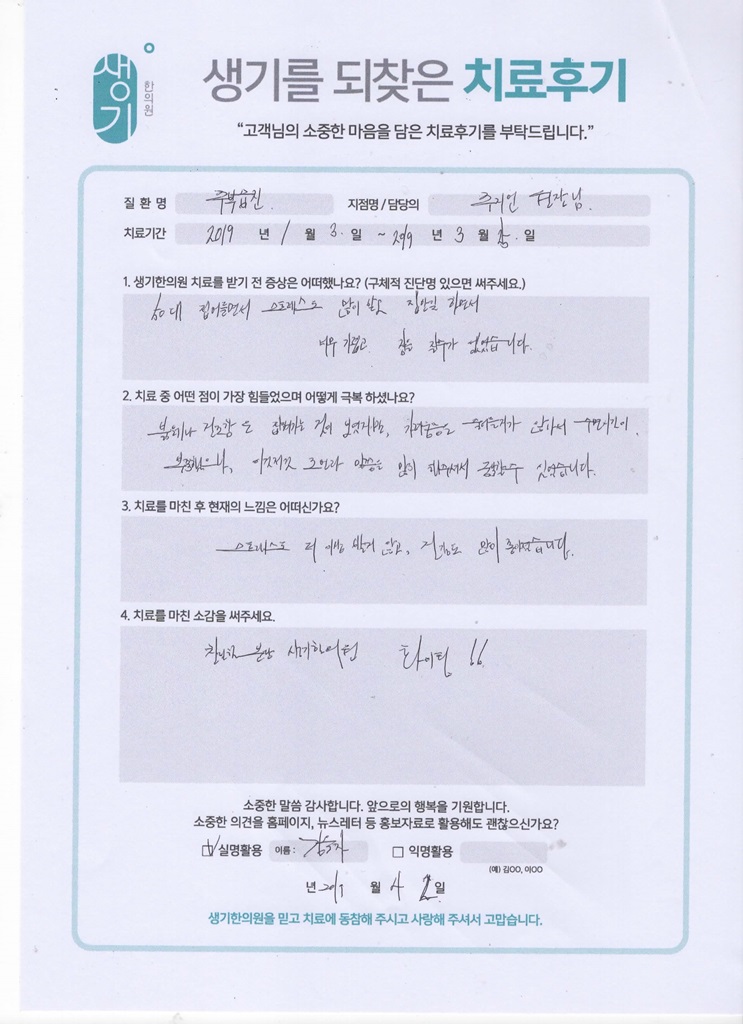 생기
한의원
생기를 되찾은 치료후기
“고객님의 소중한 마음을 담은 치료후기를 부탁드립니다.”
질 환 명 주부습진 지점명 / 담당의 원장님
치료기간 2019 년 1 월 3. 일 ~ 2019 년 3 월 일
1. 생기한의원 치료를 받기 전 증상은 어떠했나요? (구체적 진단명 있으면 써주세요.)
50대 접어들면서 스트레스도 많이 받고 집안일 하면서
너무 가렵고 잠을 잘수가 없었습니다.
2. 치료 중 어떤 점이 가장 힘들었으며 어떻게 극복 하셨나요?
붉기나 건조함 은 가려움증은 않아서 수면시간이
부족했으나, 이것저것 조언과 말씀을 많이 해주셔서 극복할수 있었습니다.
3. 치료를 마친 후 현재의 느낌은 어떠신가요?
스트레스도 더 이상 받지 않고, 건강도 많이 좋아졌습니다.
4. 치료를 마친 소감을 써주세요.
생기한의원 화이팅 !!
소중한 말씀 감사합니다. 앞으로의 행복을 기원합니다.
소중한 의견을 홈페이지, 뉴스레터 등 홍보자료로 활용해도 괜찮으신가요?
실명활용 이름 : 익명활용
(예) 김OO, 이OO
년 2019 월 4 일
생기한의원을 믿고 치료에 동참해 주시고 사랑해 주셔서 고맙습니다.